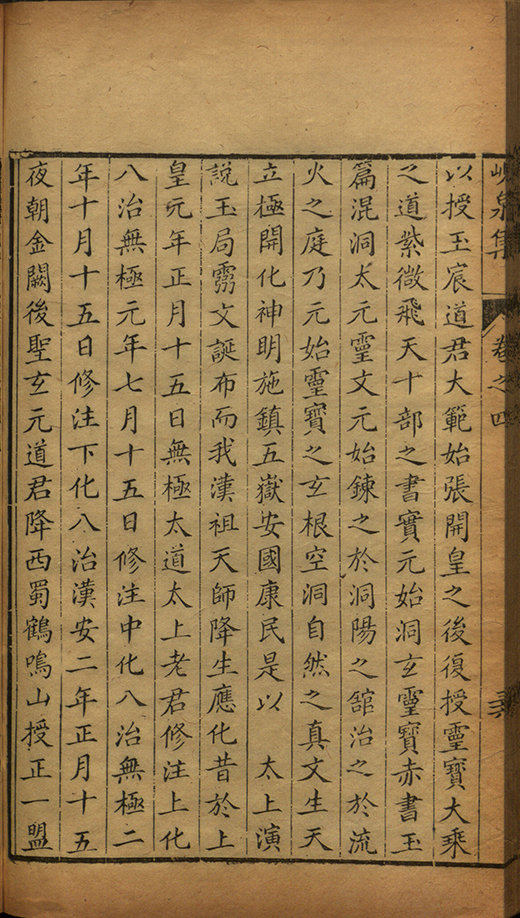 峴泉集 卷之四
以授玉宸道君大範始張開皇之後復授靈寶大乗
之道紫微飛天十部之書實元始洞玄靈寶赤書玉
篇混洞太元靈文元始鍊之於洞陽之舘治之於流
火之庭乃元始靈寶之玄根空洞自然之真文生天
立極開化神明施鎮五嶽安國康民是以 太上演
說玉局霛文誕布而我漢祖天師降生應化昔於上
皇元年正月十五日無極太道太上老君修注上化
八治無極元年七月十五日修注中化八治無極二
年十月十五日修注下化八治漢安二年正月十五
夜朝金闕後聖玄元道君降西蜀鶴鳴山授正一盟